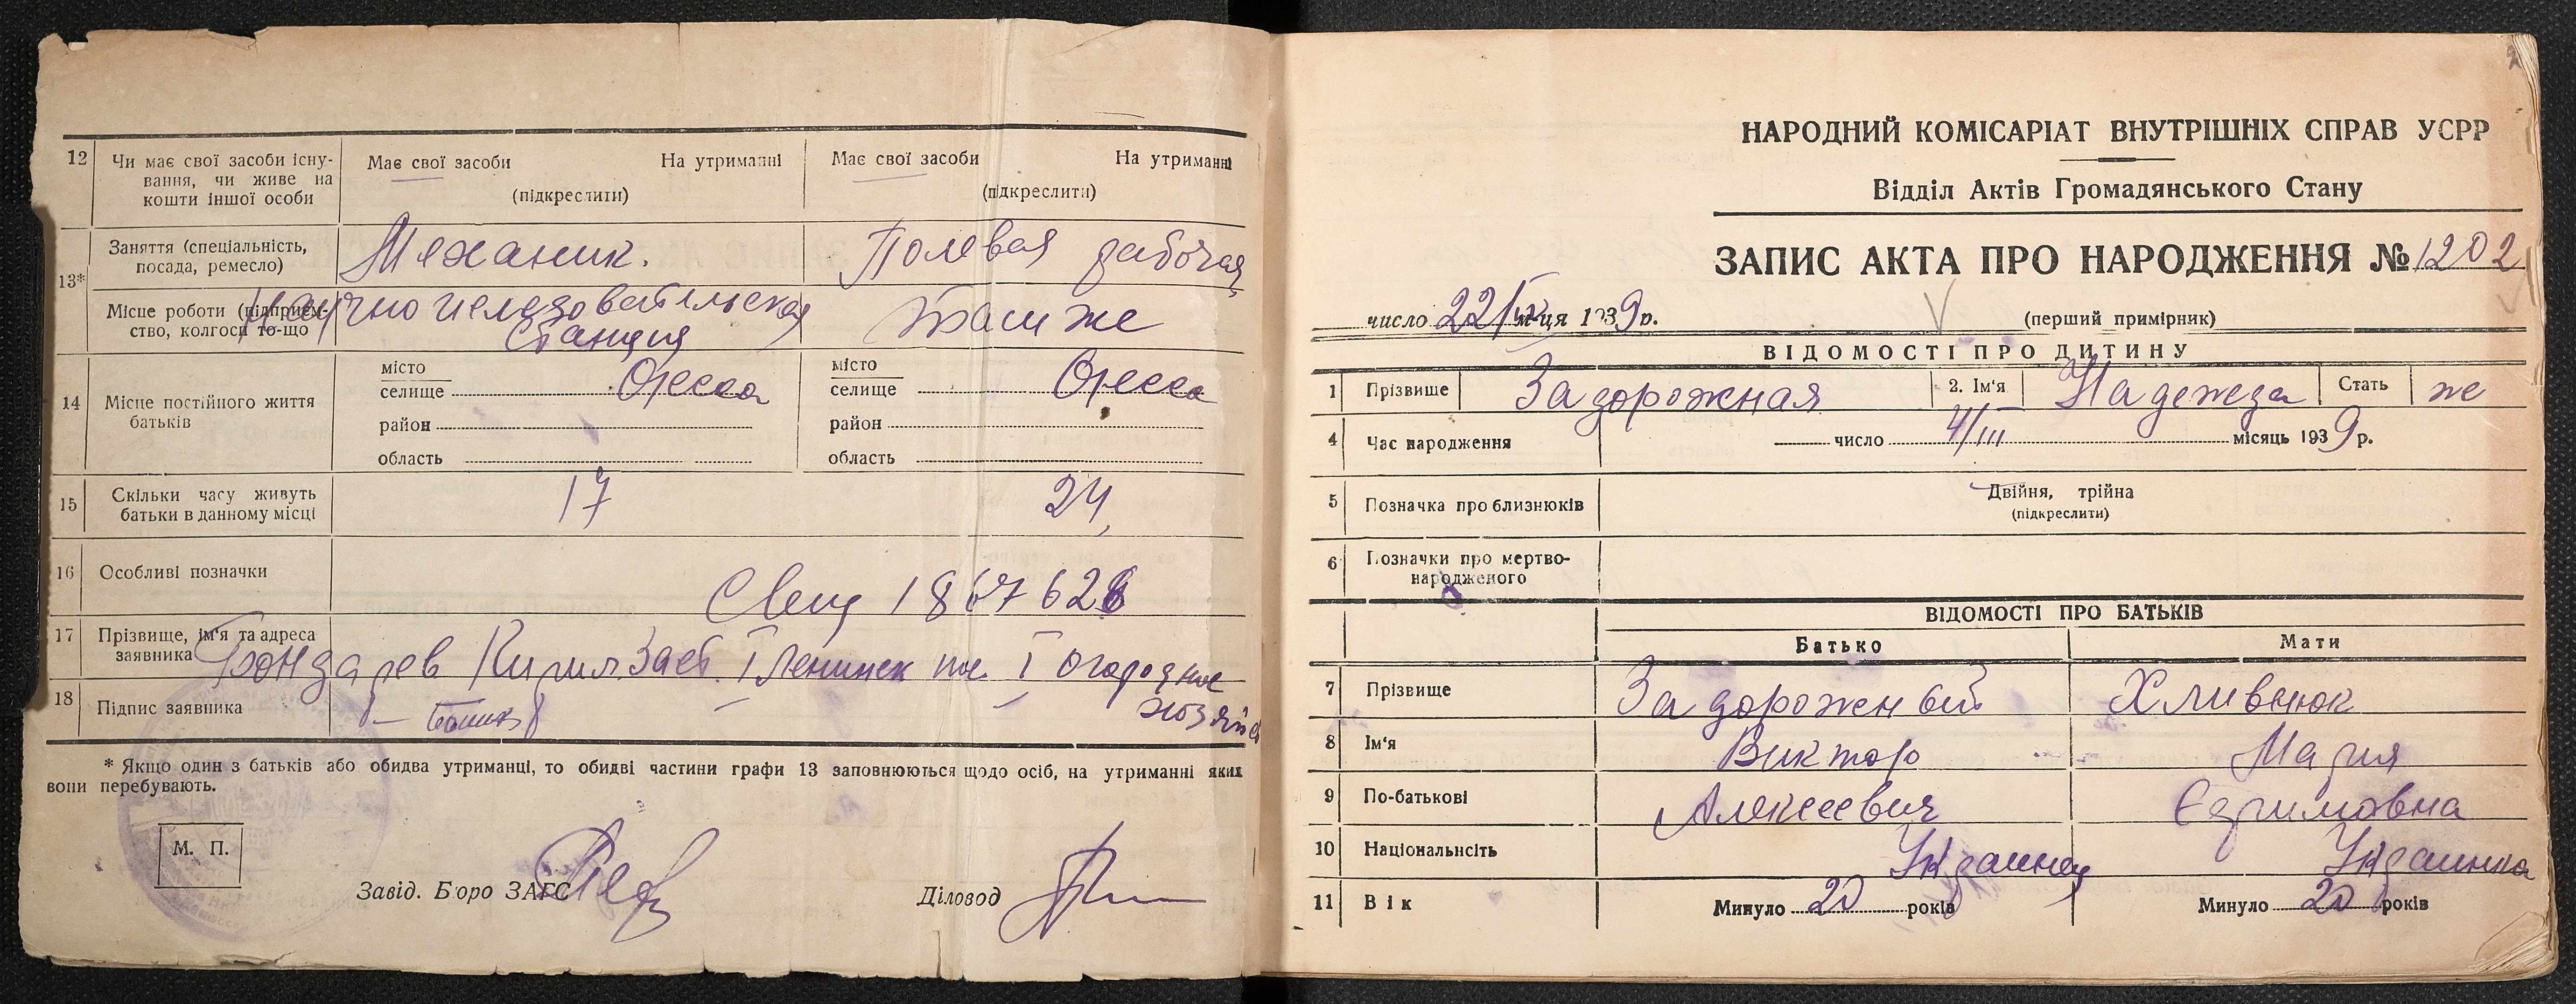 12 Чи має свої засоби існу-
вання, чи живе на
кошти іншої особи
Має свої засоби На утриманні
(підкреслити)
Має свої засоби На утриманні
(підкреслити)
13*
Заняття (спеціальність,
посада, ремесло)
Механик.
Полевая рабочая
Місце роботи (підприєм-
ство, колгосп то-що
Научно иследовательская
Станция
Там же
14 Місце постійного життя
батьків
місто
селище Одесса
район
область
місто
селище Одесса
район
область
15 Скільки часу живуть
батьки в данному місці
17
24
16 Особливі позначки
17 Прізвище, ім'я та адреса
заявника
18 Підпис заявника
* Якщо один з батьків або обидва утриманці, то обидві частини графи 13 заповнюються щодо осіб, на утриманні яких
вони перебувають.
М. П.
Завід. Бюро ЗАГС
Діловод
НАРОДНИЙ КОМІСАРІАТ ВНУТРІШНІХ СПРАВ УСРР
Відділ Актів Громадянського Стану
ЗАПИС АКТА ПРО НАРОДЖЕННЯ № 1202
число 22/ м-ця 1939 р.
(перший примірник)
ВІДОМОСТІ ПРО ДИТИНУ
1 Прізвище Задорожная 2. Ім'я Надежда Стать же
4 Час народження число 4/III місяць 1939 р.
5 Позначка про близнюків Двійня, трійна
(підкреслити)
6 Позначки про мертво-
народженого
ВІДОМОСТІ ПРО БАТЬКІВ
Батько Мати
7 Прізвище Задорожный Хливнюк
8 Ім'я Виктор Мария
9 По-батькові Алексеевич Ефримовна
10 Національність Украинец Украинка
11 Вік Минуло 20 років Минуло 20 років